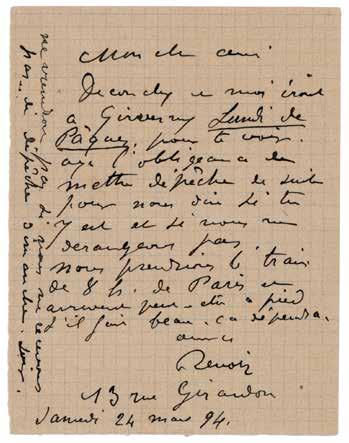 Mon cher ami
Deconchy et moi irons
à Giverny Lundi de
Pâques, pour te voir.
aye l'obligeance de
mettre dépêche de suite
pour nous dire si tu
y est et si nous ne
derangeons pas.
nous prendrions le train
de 8 h. de Paris et
arriverons peut-être à pied
s'il fait beau. ça dépendra.
amitiés
Renoir
13 rue Girardon
Samedi 24 mars 94.
ne viendrons pas si nous ne recevons
pas de dépêche dimanche soir.